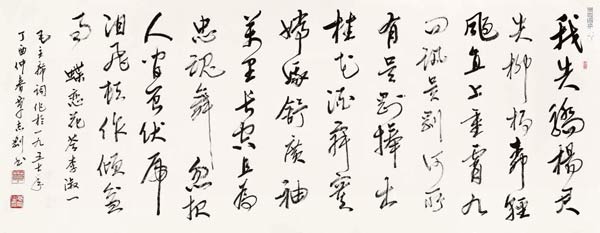 我失驕楊君
失柳楊柳輕
颺直上重霄九
问訊吴刚何所
有吴刚捧出
桂花酒寂寞
嫦娥舒廣袖
萬里长空且為
忠魂舞 忽报
人间曾伏虎
泪飛顿作倾盆
雨 蝶恋花 答李淑一
毛主席詞作於一九五七年
丁酉仲春李志刚书